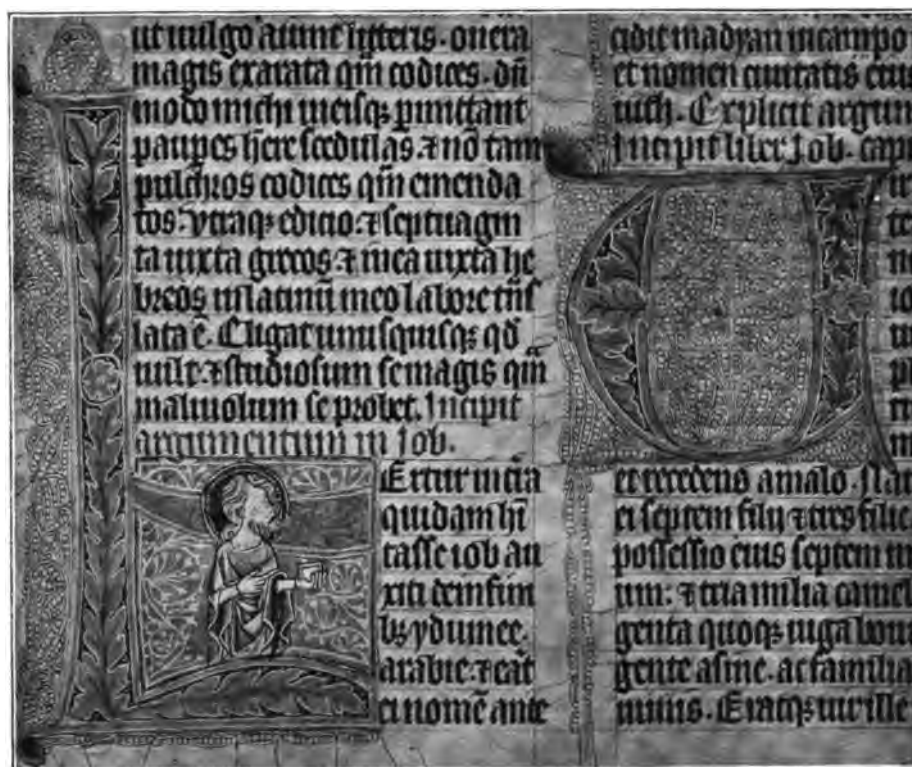 ut uulgo aiunt lṗteris. onera
magis exarata qm̄ codices. dū
modo michi meisq; ꝑmittant
pauꝑes hēre scedulas. ⁊ nō tam
pulchros codices qm̄ emenda
tos. ytraq; edicio. ⁊ septuagin
ta iuxta grecos. ⁊ mea iuxta he
breos in latinū meo labore tn̄s
lata ē. Eligat unusquisq; qd̄
uult. ⁊ studiosum se magis qm̄
maliuolum se probet. Incipit
argumentum in Job.
Ertur
quidam hī
tasse iob au
xiti
bꝫ ydumee.
arabie. ⁊ erāt
ei nomē ante
cidit madyan in campo
et nomen ciuitatis eius
uith. Explicit argum
Incipit liber Job. capi
U
et recedens a malo. Nat
ei septem filij ⁊ tres filie
possessio eius septem m
um: ⁊ tria milia camel
genta quoq; iuga bou
gente asine. ac familia
nimis. Eratq; uir ille